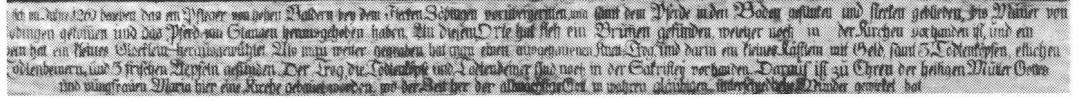 im Jahre 1267 begeben das ein Pfarrer von hohen Baldern bey dem Flecken Söbingen vorübergeritten, und samt dem Pferde in den Boden gesunken und stecken geblieben, bis Mäner von
gekomen und das Pferd von Stangen herausgehoben haben. An diesem Orte hat sich ein Brünen gefunden, welcher noch in der Kirchen vorhanden ist, und ein
hat ein kleines Glöcklein herausgewühlet. Als man weiter gegraben hat man einen Trog und darin ein kleines Kästlein mit Geld samt 3 Todtenköpfen, etlichen
Todtenbeinern, und 3 frischen Aepfeln gefunden. Der Trog, die Todtenköpfe und Todtenbeiner sind noch in der Sakristey vorhanden. Darauf ist zu Ehren der heiligen Mutter Gottes
und Jungfrauen Maria hier eine Kirche gebauet worden, wo der allmächtige Gott in wahren gläubigen, Wunder gewirket hat